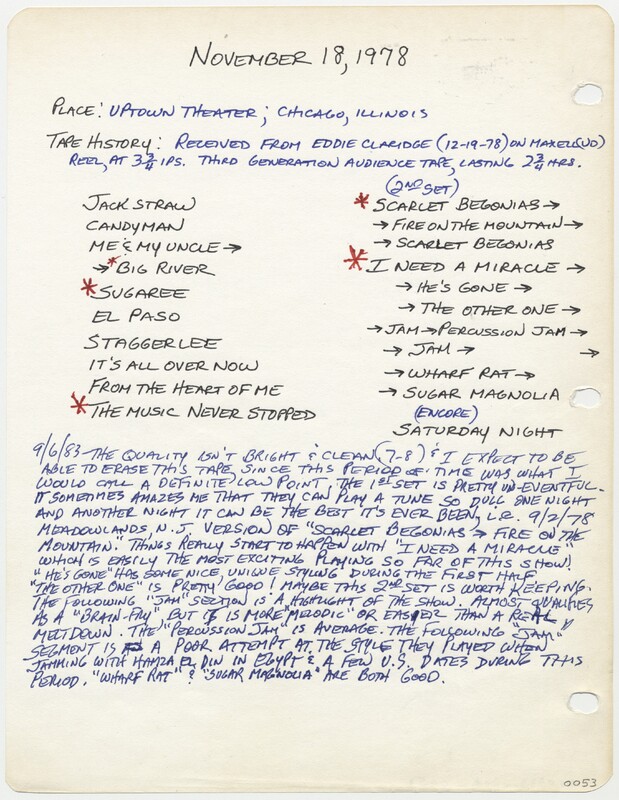 NOVEMBER 18, 1978
PLACE: UPTOWN THEATER; CHICAGO, ILLINOIS
TAPE HISTORY: RECEIVED FROM EDDIE CLARIDGE (12-19-78) ON MAXELL(UD)
REEL, AT 3 3/4 IPS. THIRD GENERATION AUDIENCE TAPE, LASTING 2 3/4 HRS.
JACK STRAW
CANDYMAN
ME & MY UNCLE →
→ *BIG RIVER
*SUGAREE
EL PASO
STAGGERLEE
IT'S ALL OVER NOW
FROM THE HEART OF ME
*THE MUSIC NEVER STOPPED
(2ND SET)
*SCARLET BEGONIAS →
→ FIRE ON THE MOUNTAIN →
→ SCARLET BEGONIAS
*I NEED A MIRACLE →
→ HE'S GONE →
→ THE OTHER ONE →
→ JAM → PERCUSSION JAM →
→ JAM → →
→ WHARF RAT →
→ SUGAR MAGNOLIA
(ENCORE)
SATURDAY NIGHT
9/6/83 - THE QUALITY ISN'T BRIGHT & CLEAN (7-8) & I EXPECT TO BE
ABLE TO ERASE THIS TAPE, SINCE THIS PERIOD OF TIME WAS WHAT I
WOULD CALL A DEFINITE LOW POINT. THE 1ST SET IS PRETTY UN-EVENTFUL.
IT SOMETIMES AMAZES ME THAT THEY CAN PLAY A TUNE SO DULL ONE NIGHT
AND ANOTHER NIGHT IT CAN BE THE BEST IT'S EVER BEEN, I.E. 9/2/78
MEADOWLANDS, N.J. VERSION OF "SCARLET BEGONIAS → FIRE ON THE
MOUNTAIN." THINGS REALLY START TO HAPPEN WITH "I NEED A MIRACLE"
WHICH IS EASILY THE MOST EXCITING PLAYING SO FAR OF THIS SHOW!
"HE'S GONE" HAS SOME NICE, UNIQUE STYLING DURING THE FIRST HALF
"THE OTHER ONE" IS PRETTY GOOD! MAYBE THIS 2ND SET IS WORTH KEEPING.
THE FOLLOWING "JAM" SECTION IS A HIGHLIGHT OF THE SHOW. ALMOST QUALIFIES
AS A "BRAIN-FRY" BUT IT IS MORE "MELODIC" OR EASIER THAN A REAL
MELTDOWN. THE "PERCUSSION JAM" IS AVERAGE. THE FOLLOWING "JAM"
SEGMENT IS A POOR ATTEMPT AT THE STYLE THEY PLAYED WHEN
JAMMING WITH HAMZA EL DIN IN EGYPT & A FEW U.S. DATES DURING THIS
PERIOD. "WHARF RAT" & "SUGAR MAGNOLIA" ARE BOTH GOOD.
0053